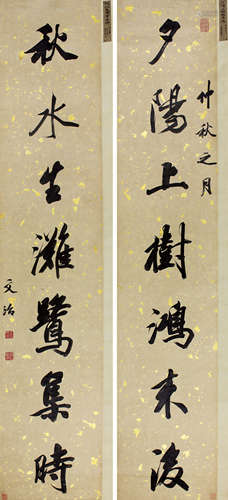 仲秋之月
夕陽上樹鴻来後
秋水生灘鷺集時
文治